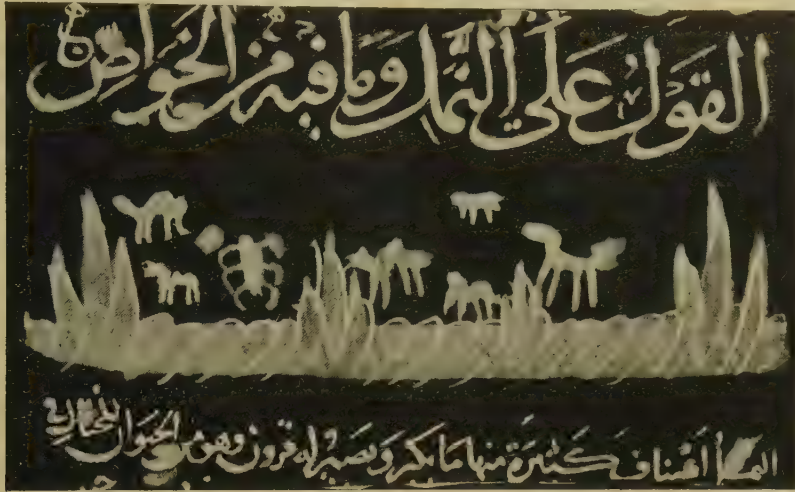 القَول عَلَى النَّمل وَمَا فيه من الخَواصّ
النمل أصناف كَثيرَة منها مَا يكبر وَيَصير له قرون وهو من الحَيوان